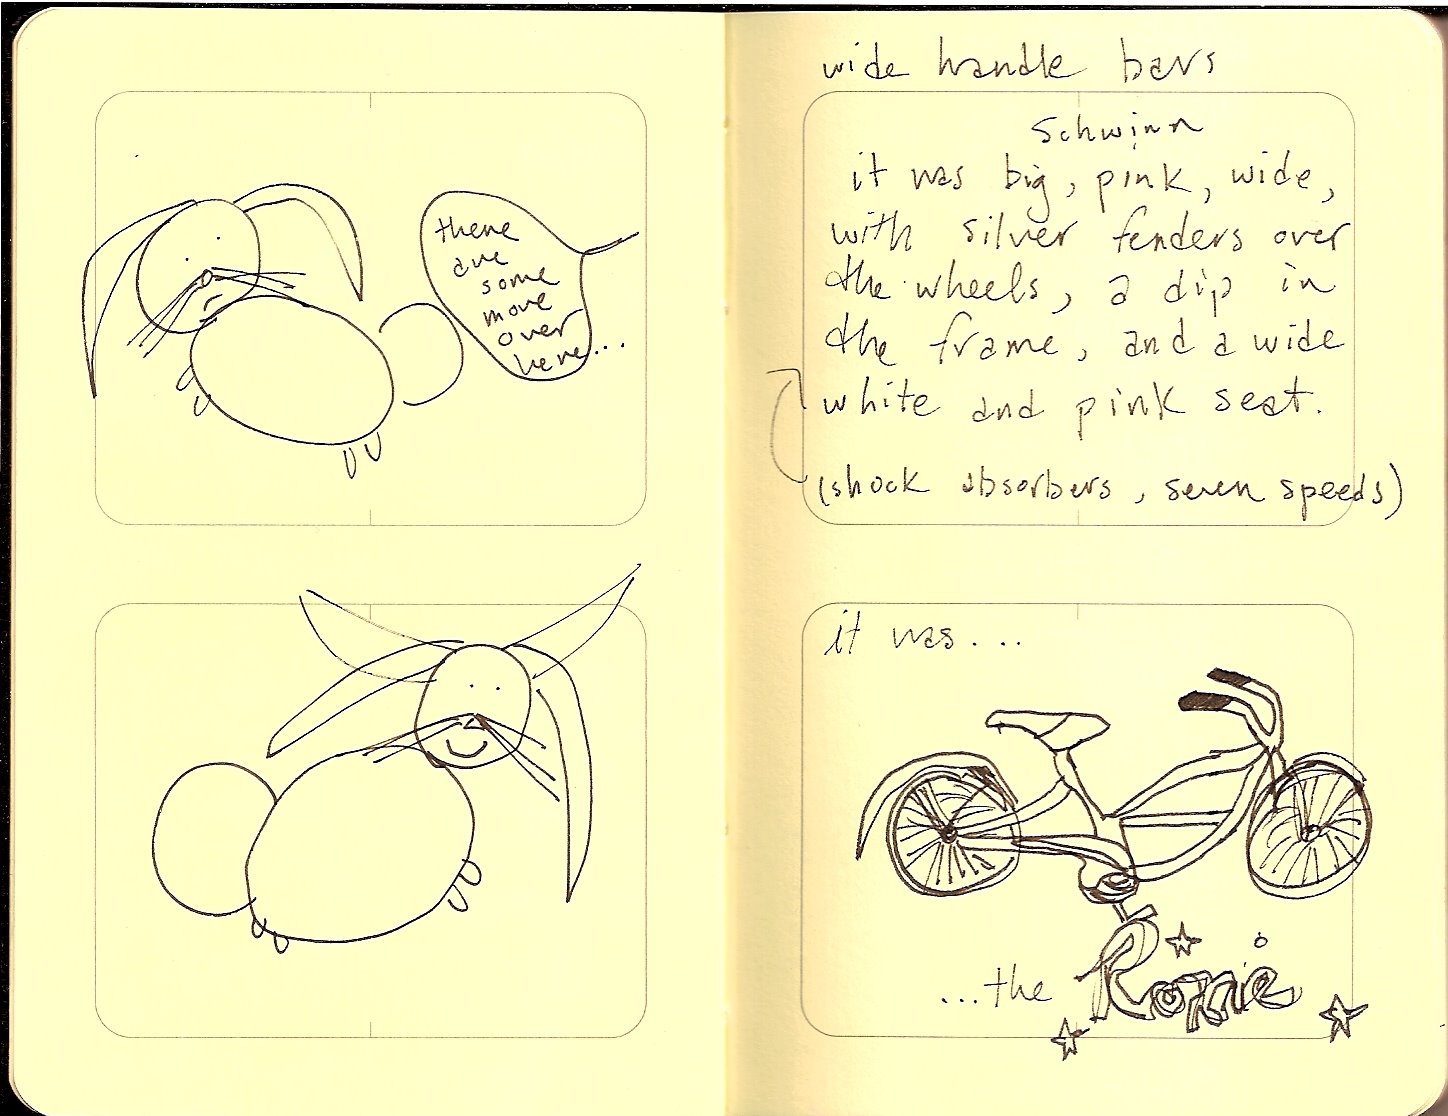 there
are
some
more
over
here...
wide handle bars
Schwinn
it was big, pink, wide,
with silver fenders over
the wheels, a dip in
the frame, and a wide
white and pink seat.
(shock absorbers, seven speeds)
it was...
...the Ronnie